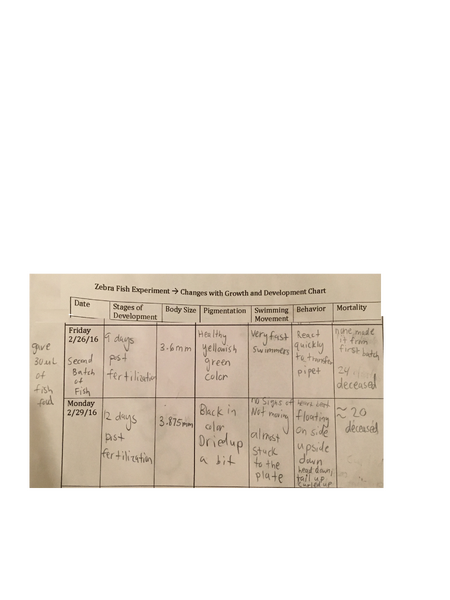 Zebra Fish Experiment → Changes with Growth and Development Chart
Date
Stages of
Development
Body Size
Pigmentation
Swimming
Movement
Behavior
Mortality
gave
30uL
of
fish
food
Friday
2/26/16
Second
Batch
of
Fish
9 days
post
fertilization
3.6mm
Healthy
yellowish
green
color
very fast
swimmers
React
quickly
to transfer
pipet
none, made
it from
first batch
24
deceased
Monday
2/29/16
12 days
post
fertilization
3.875mm
Black in
color
Dried up
a bit
no signs of
Not moving
almost
stuck
to the
plate
floating
on side
upside
down
head down/
tail up
curled up
≈ 20
deceased